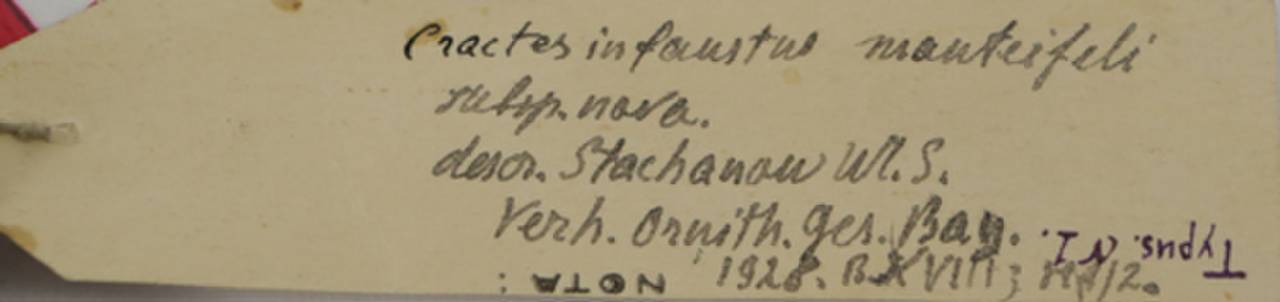 Cractes infaustus manteifeli
subsp. nova.
descr. Stachanow Wl. S.
Verh. Ornith. Ges. Bay.
1928. B. XVIII; H 1/2.
Typus. N I.
NOTA :